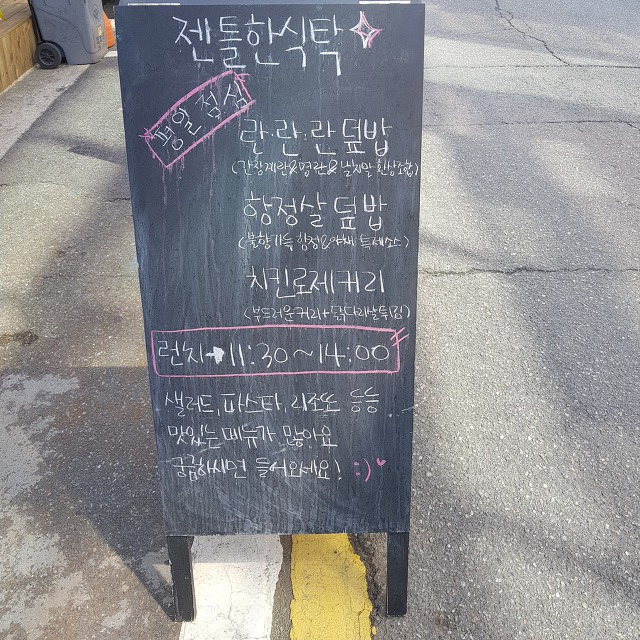 젠틀한식탁
평일 점심
란.란.란 덮밥
(간장계란&명란&날치알 환상조합)
항정살 덮밥
(불향가득 항정&야채 특제소스)
치킨로제커리
(부드러운커리+닭다리살튀김)
런치→11:30~14:00
샐러드, 파스타, 리조또 등등
맛있는 메뉴가 많아요
궁금하시면 들어오세요! :)♥